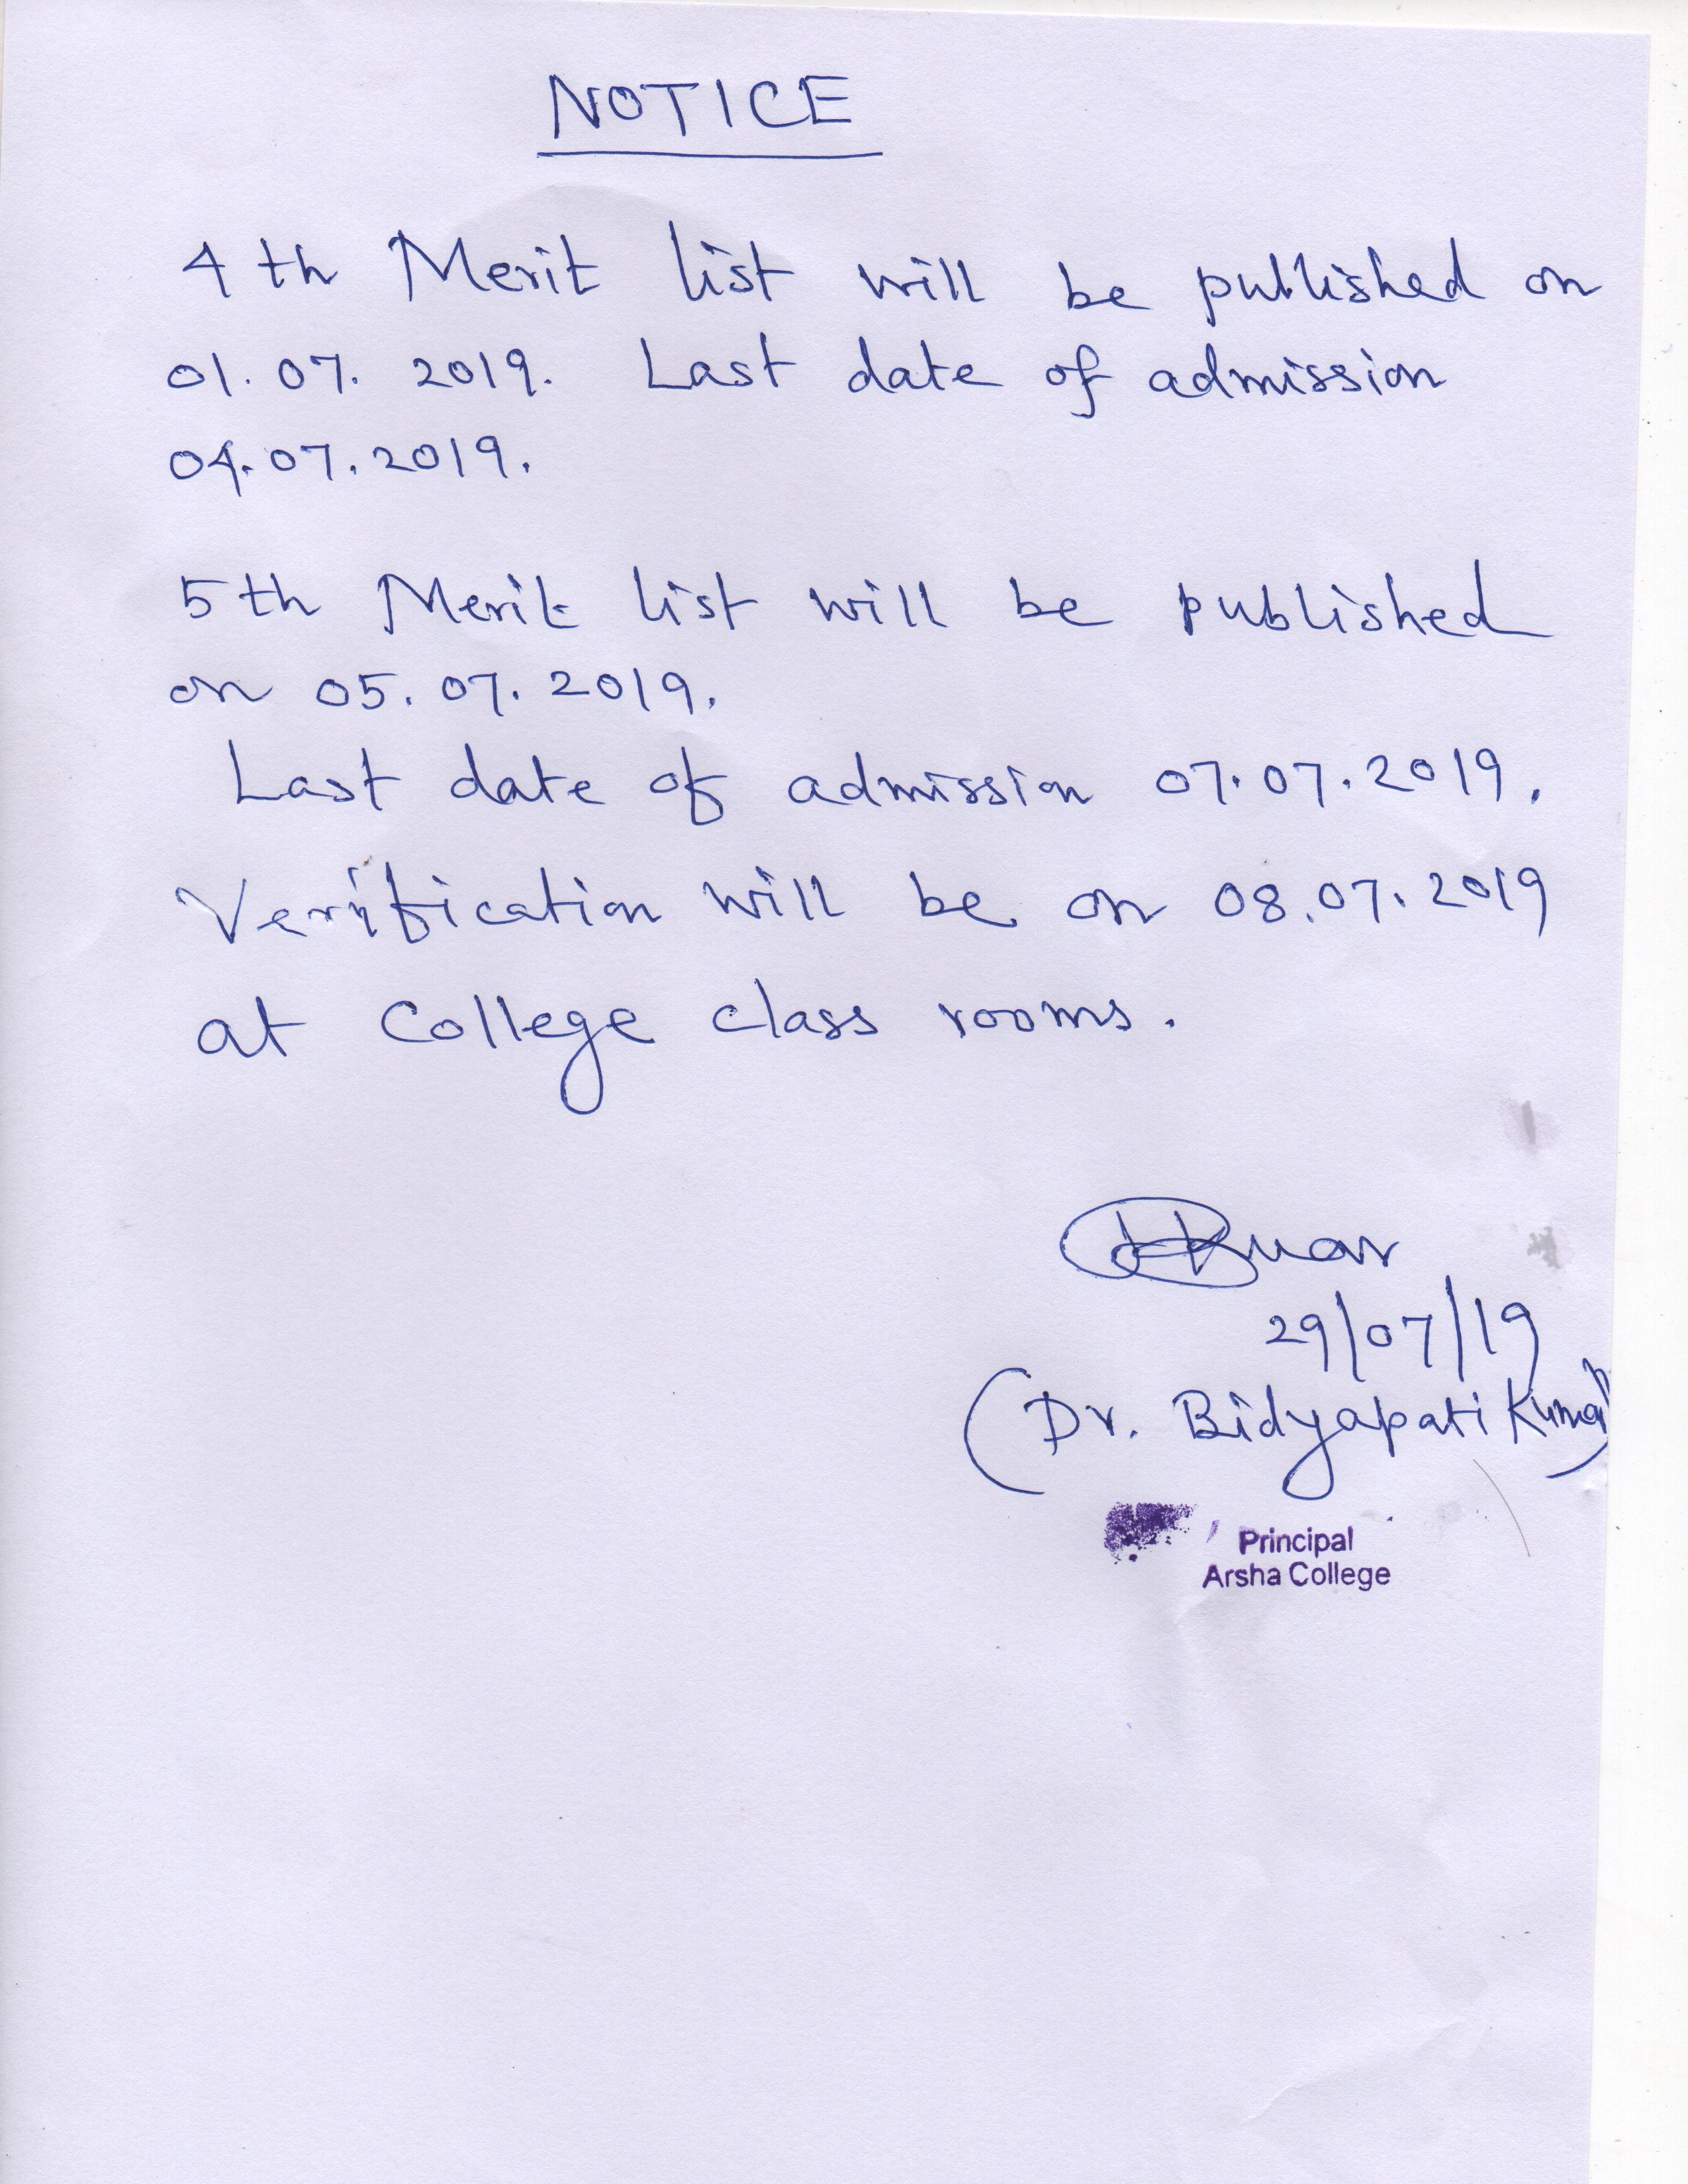 NOTICE
4th Merit list will be published on
01.07.2019. Last date of admission
04.07.2019.
5th Merit list will be published
on 05.07.2019.
Last date of admission 07.07.2019.
Verification will be on 08.07.2019
at College class rooms.
29/07/19
(Dr. Bidyapati Kumar)
Principal
Arsha College